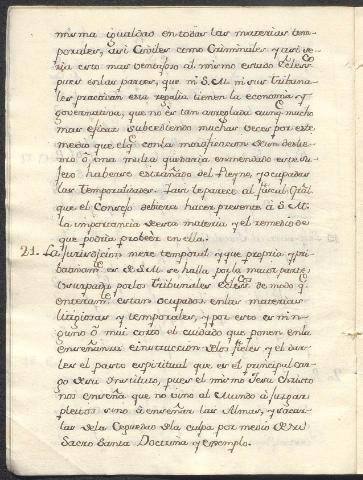 misma igualdad en todas las materias tem-
porales, asi Civiles como Criminales, y asi se-
ria esto mas ventajoso al mismo estado Ecless.co
pues en las partes, que ni S.M. ni sus tribuna-
les practican esta regalia tienen la economia y
governativa, que no es tan arreglada aunq.e mucho
mas eficaz subcediendo muchas veces por este
medio que el q.e con la mortificacion de un destie-
rro, ó una multa quedaria enmendado
haberse estrañado del Reyno, y ocupadas
las temporalidades. Asi le parece al fiscal Gral
que el Consejo debiera hacer presente á S.M.
la importancia de esta materia y el remedio de
que podria probeer en ella.
21. La Jurisdicion mere temporal, y que propia y pri-
batibam.te es de S.M. se halla por la maior parte
usurpada por los tribunales Ecless.cos de modo q.e
enteram.te estan ocupados en las materias
litigiosas y temporales, y por esto es nin-
guno ó mui corto el cuidado que ponen en la
enseñanza e instruccion de los fieles y el dar-
les el pasto espiritual que es el principal car-
go de su Instituto, pues el mismo Jesu Christo
nos enseña que no vino al Mundo á juzgar
pleitos sino á enseñar las Almas, y sacar-
las de la Ceguedad de la culpa por medio de su
Sacro Santa Doctrina y exemplo.